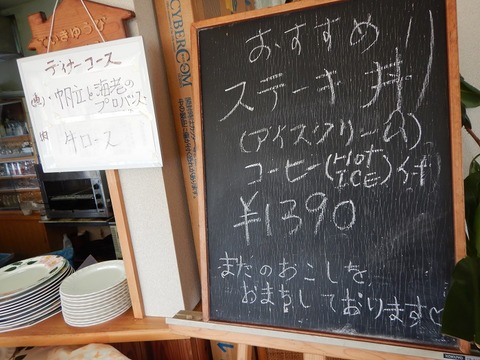 ていきゅうび
ディナーコース
(魚)・帆立と海老の
プロバンス
(肉) 牛ロース
CYBERCOM
おすすめ!
ステーキ丼
(アイスクリーム)
コーヒー(HOT ICE)付
¥1390
またのおこしを
おまちしております♡